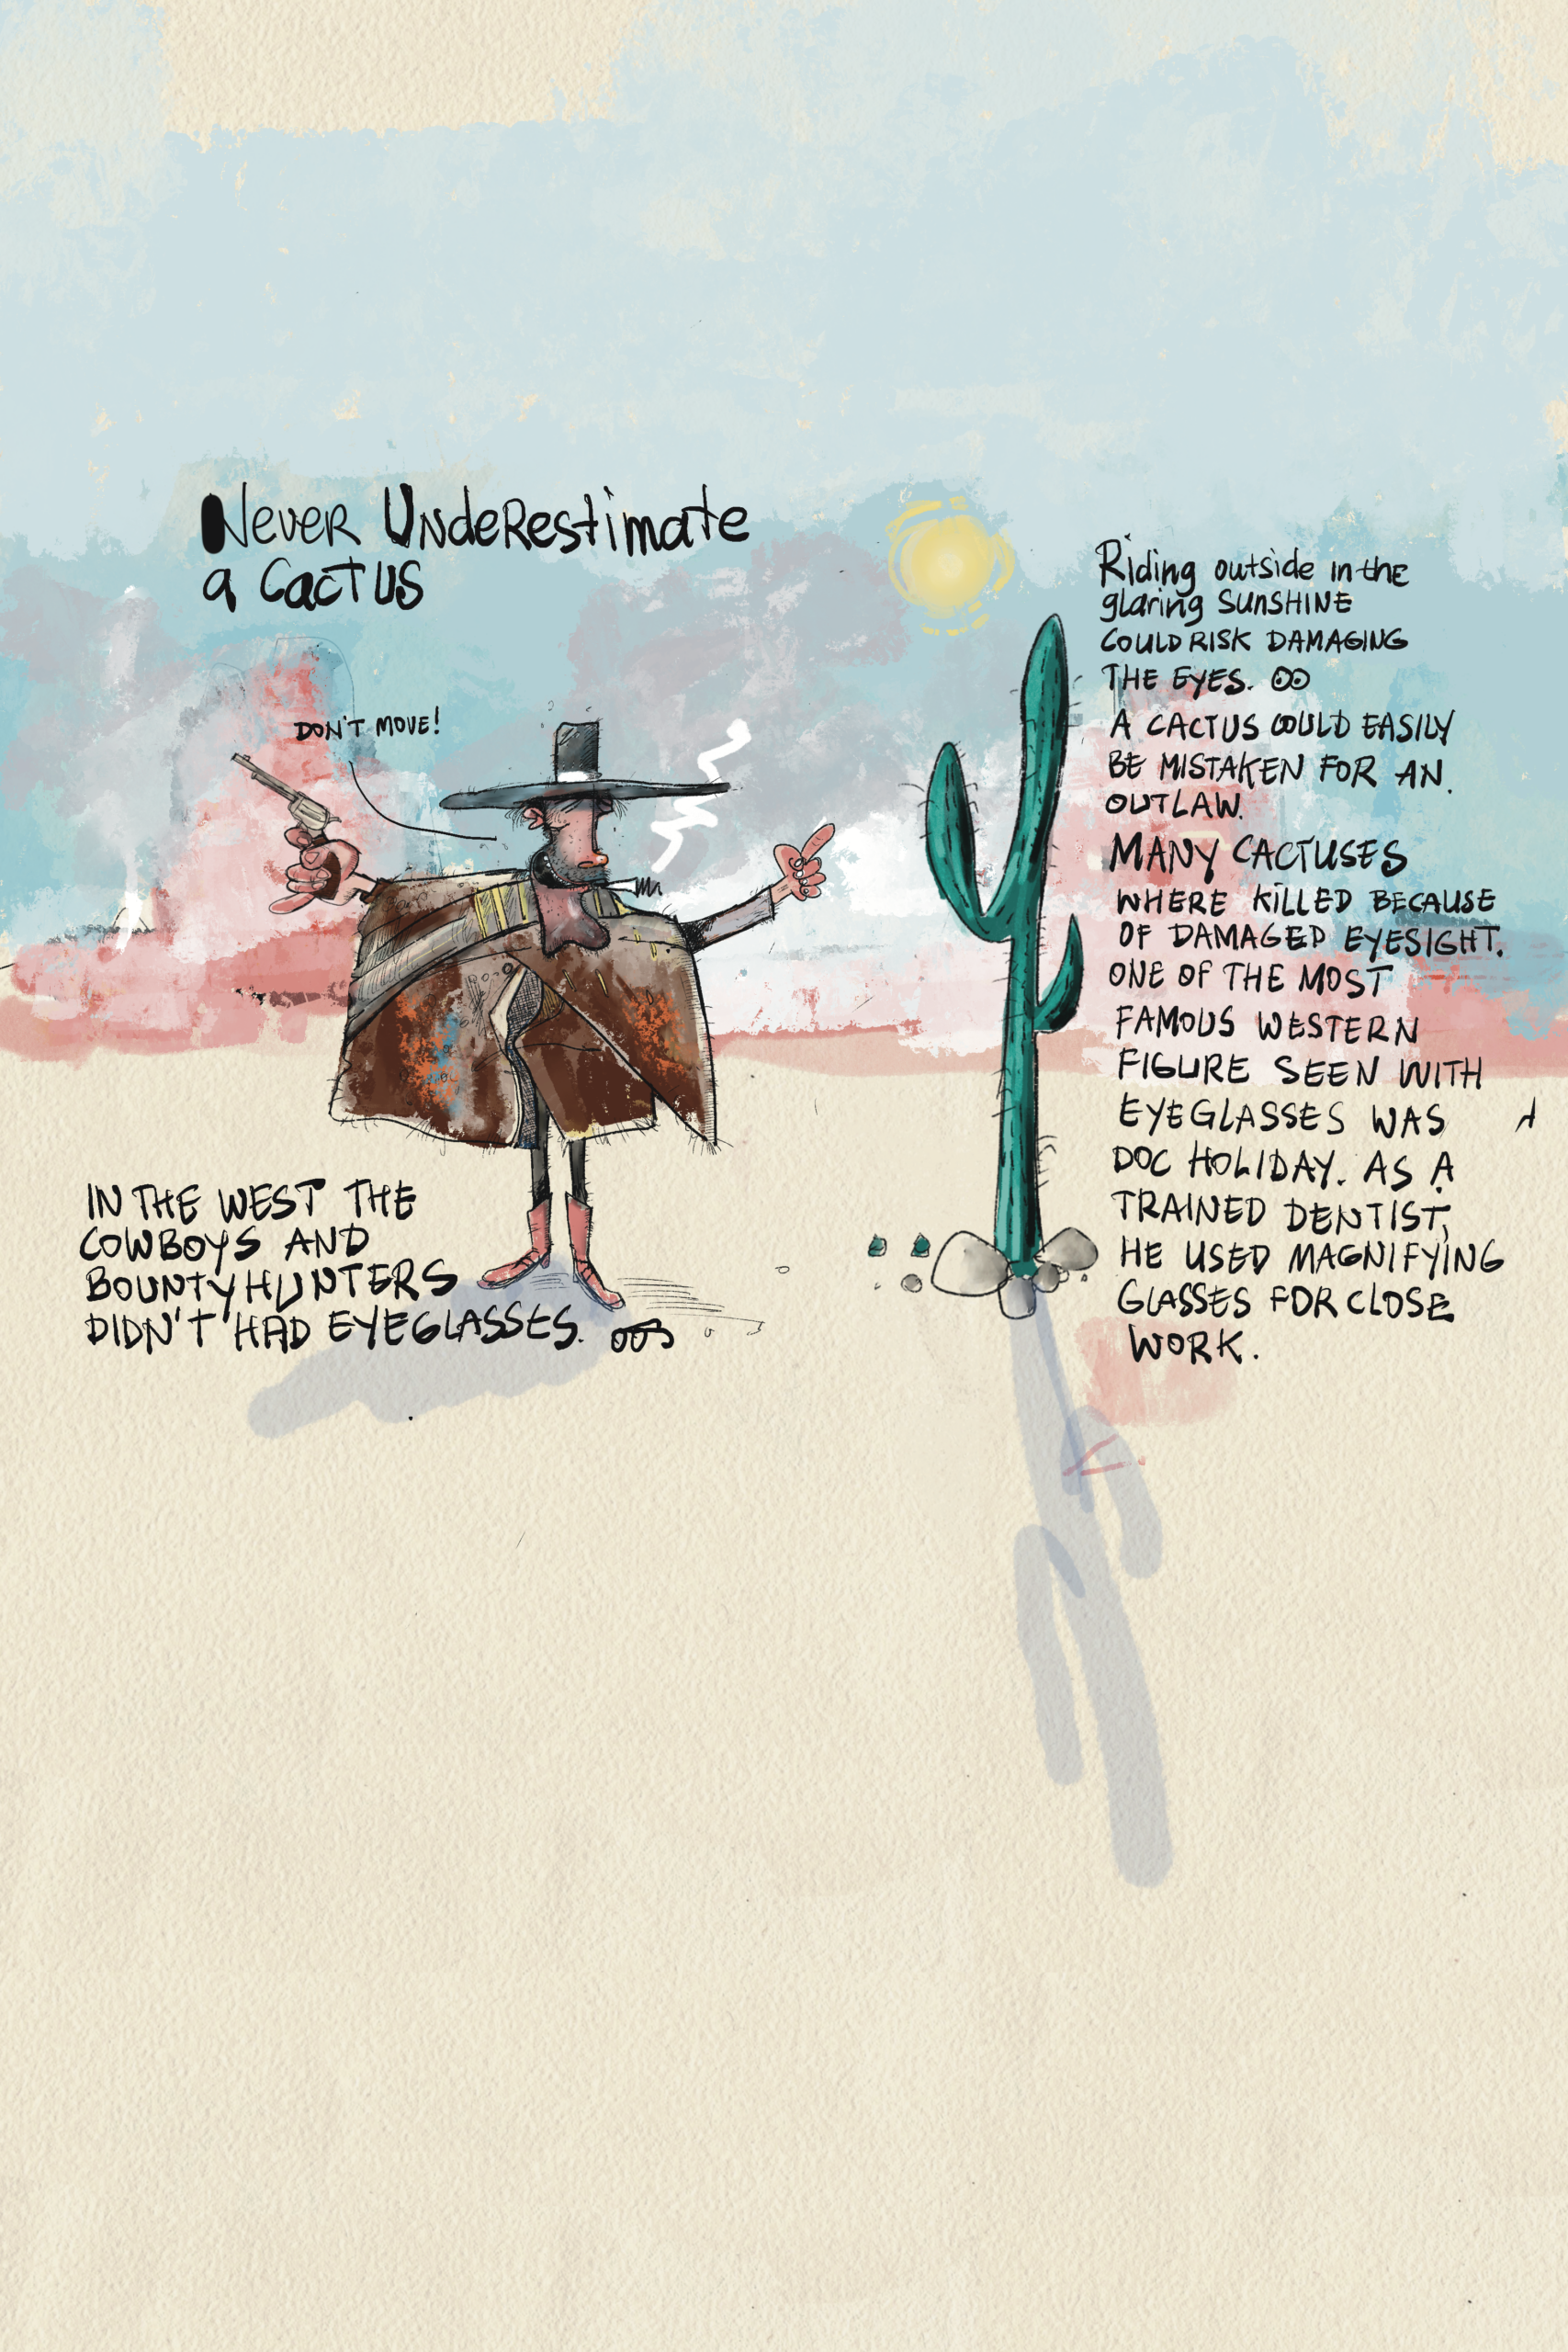 Never Underestimate
a Cactus
DON'T MOVE!
IN THE WEST THE
COWBOYS AND
BOUNTYHUNTERS
DIDN'T HAD EYEGLASSES.
Riding outside in the
glaring SUNSHINE
COULD RISK DAMAGING
THE EYES.
A CACTUS COULD EASILY
BE MISTAKEN FOR AN
OUTLAW.
MANY CACTUSES
WHERE KILLED BECAUSE
OF DAMAGED EYESIGHT.
ONE OF THE MOST
FAMOUS WESTERN
FIGURE SEEN WITH
EYEGLASSES WAS
DOC HOLIDAY. AS A
TRAINED DENTIST,
HE USED MAGNIFYING
GLASSES FOR CLOSE
WORK.